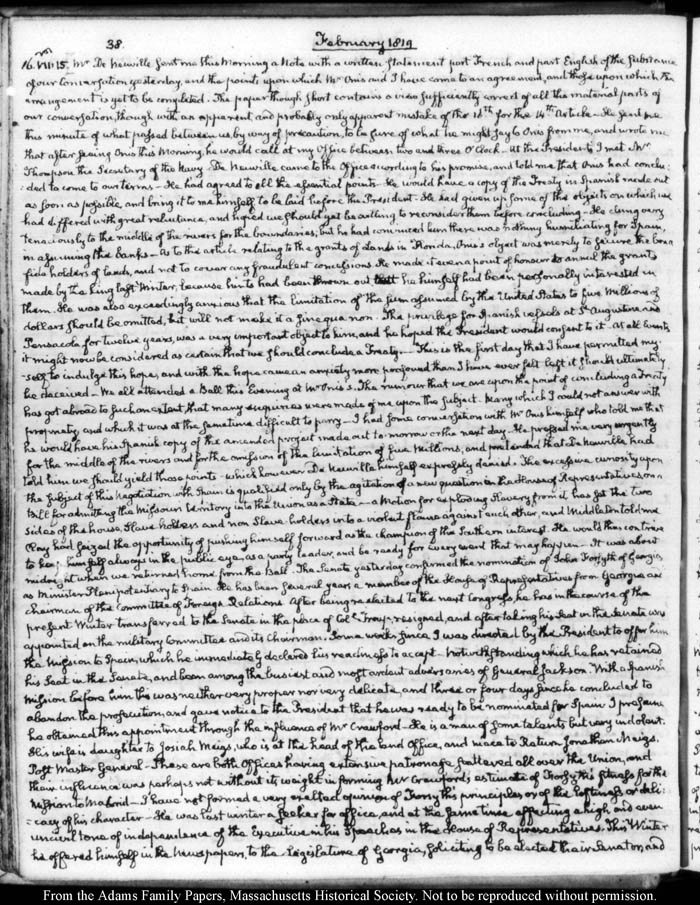 38.
February 1819
16. VIII:15. Mr De Neuville sent me this Morning a Note with a written Statement part French and part English of the Substance
of our Conversation yesterday, and the points upon which Mr Onis and I have come to an agreement, and those upon which the
arrangement is yet to be completed. The paper though short contains a view sufficiently correct of all the material parts of
our conversation, though with an apparent and probably only apparent mistake of the 11th for the 14th Article. He sent me
this minute of what passed between us, by way of precaution, to be sure of what he might say to Onis from me, and wrote me
that after seeing Onis this Morning, he would call at my Office between two and three O'Clock. At the President's I met Mr
Thompson the Secretary of the Navy. De Neuville came to the Office according to his promise, and told me that Onis had conclu-
-ded to come to our terms. He had agreed to all the essential points. He would have a copy of the Treaty in Spanish made out
as soon as possible, and bring it to me himself to be laid before the President. He had given up some of the objects on which we
had differed with great reluctance, and hoped we should yet be willing to reconsider them before concluding. He clung very
tenaciously to the middle of the rivers for the boundaries, but he had convinced him there was nothing humiliating for Spain,
in assuming the banks. As to the article relating to the grants of lands in Florida, Onis's object was merely to secure the bona
fide holders of lands, and not to cover any fraudulent concessions. He made it even a point of honour to annul the grants
made by the King last Winter, because hints had been thrown out that he himself had been personally interested in
them. He was also exceedingly anxious that the limitation of the sum assumed by the United States to five Millions of
dollars should be omitted, but will not make it a sine qua non. The privilege for Spanish vessels at St Augustine and
Pensacola for twelve years, was a very important object to him, and he hoped the President would consent to it. At all Events
it might now be considered as certain that we should conclude a Treaty. This is the first day that I have permitted my-
-self to indulge this hope, and with the hope came an anxiety more profound than I have ever felt left it should ultimately
be deceived. We all attended a Ball this Evening at Mr Onis's. The rumour that we are upon the point of concluding a Treaty
has got abroad to such an extent that many enquiries were made of me upon the subject. Many which I could not answer with
propriety, and which it was at the same time difficult to parry. I had some conversation with Mr Onis himself who told me that
he would have his Spanish copy of the amended project made out to-morrow or the next day. He pressed me very urgently
for the middle of the rivers and for the omission of the limitation of five Millions, and pretended that De Neuville had
told him we should yield those points, which however De Neuville himself expressly denied. The excessive curiosity upon
the subject of this Negotiation with Spain is qualified only by the agitation of a new question in the House of Representatives on a
Bill for admitting the Missouri Territory into the Union as a State. A Motion for excluding Slavery from it has set the two
sides of the house, Slave holders and non Slave-holders into a violent flame against each other, and Middleton told me
Clay had seized the opportunity of pushing himself forward as the champion of the Southern interest. He would thus contrive
to keep himself always in the public eye, as a party leader, and be ready for every event that may happen. It was about
midnight when we returned home from the Ball. The Senate yesterday confirmed the nomination of John Forsyth of Georgia,
as Minister Plenipotentiary to Spain. He has been several years a member of the House of Representatives from Georgia and
chairman of the Committee of Foreign Relations. After being re-elected to the next Congress, he has in the course of the
present Winter transferred to the Senate in the place of Coll Troup, resigned, and after taking his seat in the Senate was
appointed on the military Committee and its Chairman. Some weeks since, I was directed by the President to offer him
the Mission to Spain, which he immediately declared his readiness to accept. Notwithstanding which he has retained
his Seat in the Senate, and been among the busiest and most ardent adversaries of General Jackson. With a Spanish
Mission before him this was neither very proper nor very delicate, and three or four days since he concluded to
abandon the prosecution, and gave notice to the President that he was ready to be nominated for Spain. I presume
he obtained this appointment through the influence of Mr Crawford. He is a man of some talents but very indolent.
His wife is daughter to Josiah Meigs, who is at the head of the Land Office, and niece to Return Jonathan Meigs,
Post Master General. These are both Offices having extensive patronage scattered all over the Union, and
their influence was perhaps not without its weight in forming Mr Crawford's estimate of Forsyth's fitness for the
Mission to Madrid. I have not formed a very exalted opinion of Forsyth's principles or of the loftiness or deli-
-cacy of his character. He was last winter a seeker for office, and at the same time affecting a high, and even
uncivil tone of independence of the Executive in his Speeches in the House of Representatives. This Winter
he offered himself in the Newspapers, to the Legislature of Georgia, soliciting to be elected their Senator, and
From the Adams Family Papers, Massachusetts Historical Society. Not to be reproduced without permission.